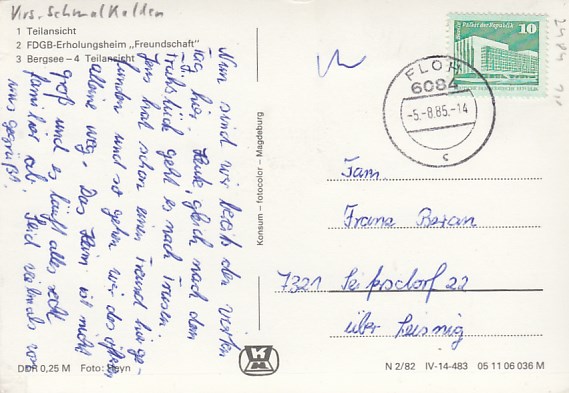 Krs. Schmalkalden
1 Teilansicht
2 FDGB-Erholungsheim „Freundschaft"
3 Bergsee – 4 Teilansicht
Nun sind wir bereits den vierten
Tag hier. Heute, gleich nach dem
Frühstück geht es nach Trusen.
Jens hat schon einen Freund hier ge-
funden und so gehen wir des öfteren
alleine weg. Das Heim ist nicht
groß und es läuft alles recht
familiär ab. Seid vielmals von
uns gegrüßt.
Konsum – fotocolor – Magdeburg
DDR 0,25 M Foto: Heyn
Palast der Republik
10
FLOH
6084
-5.-8.85.-14
c
Fam.
Franz
7321 Seifersdorf 22
über Leisnig
N 2/82 IV-14-483 05 11 06 036 M